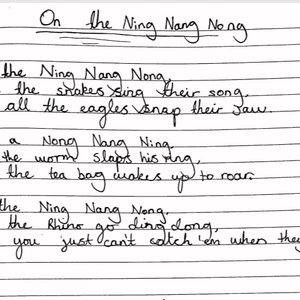 On the Ning Nang Nong
the Ning Nang Nong,
the snakes sing their song,
all the eagles snap their jaw.
a Nong Nang Ning
the worm slaps his ring,
the tea bag wakes up to roar
the Ning Nang Nong.
the Rhino go ding dong,
you just can't catch 'em when they